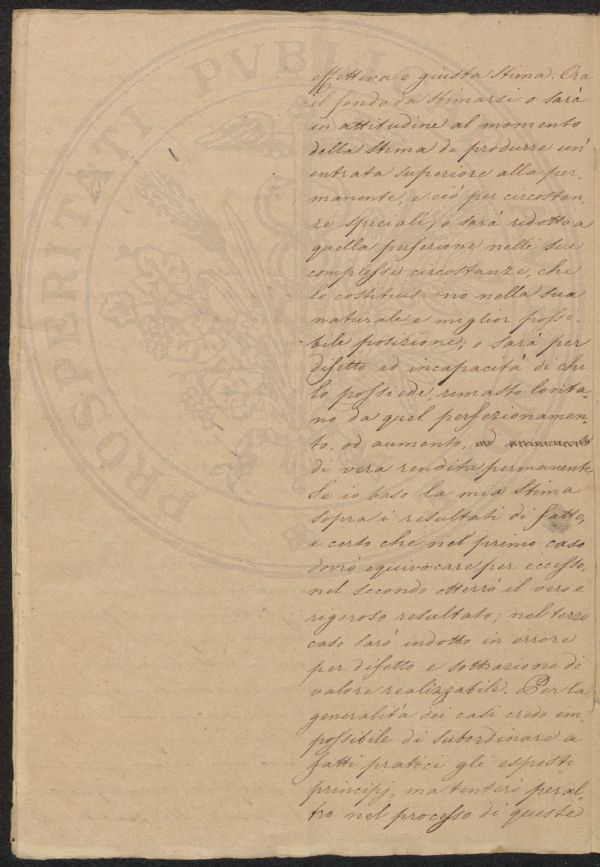 PROSPERITATI PVBLI
effettiva e giusta stima. Ora
il fondo da stimarsi o sarà
in attitudine al momento
della stima di produrre un'
entrata superiore alla per-
manente, e ciò per circostan-
ze speciali; o sarà ridotto a
quella perfezione nelle sue
complesse circostanze, che
lo costituis no nella sua
naturale e miglior possi-
bile posizione; o sarà per
difetto ed incapacità di chi
lo possiede, rimasto lonta-
no da quel perfezionamen-
to, od aumento,
di vera rendita permanente.
Se io baso la mia stima
sopra i resultati di fatto,
è certo che nel primo caso
dovrò equivocare per eccesso,
nel secondo otterrò il vero e
rigoroso resultato; nel terzo
caso sarò indotto in errore
per difetto e sottrazione di
valore realizzabile. Per la
generalità dei casi credo im-
possibile di subordinare a
fatti pratici gli esposti
principj, ma tenterò peral-
tro nel processo di queste